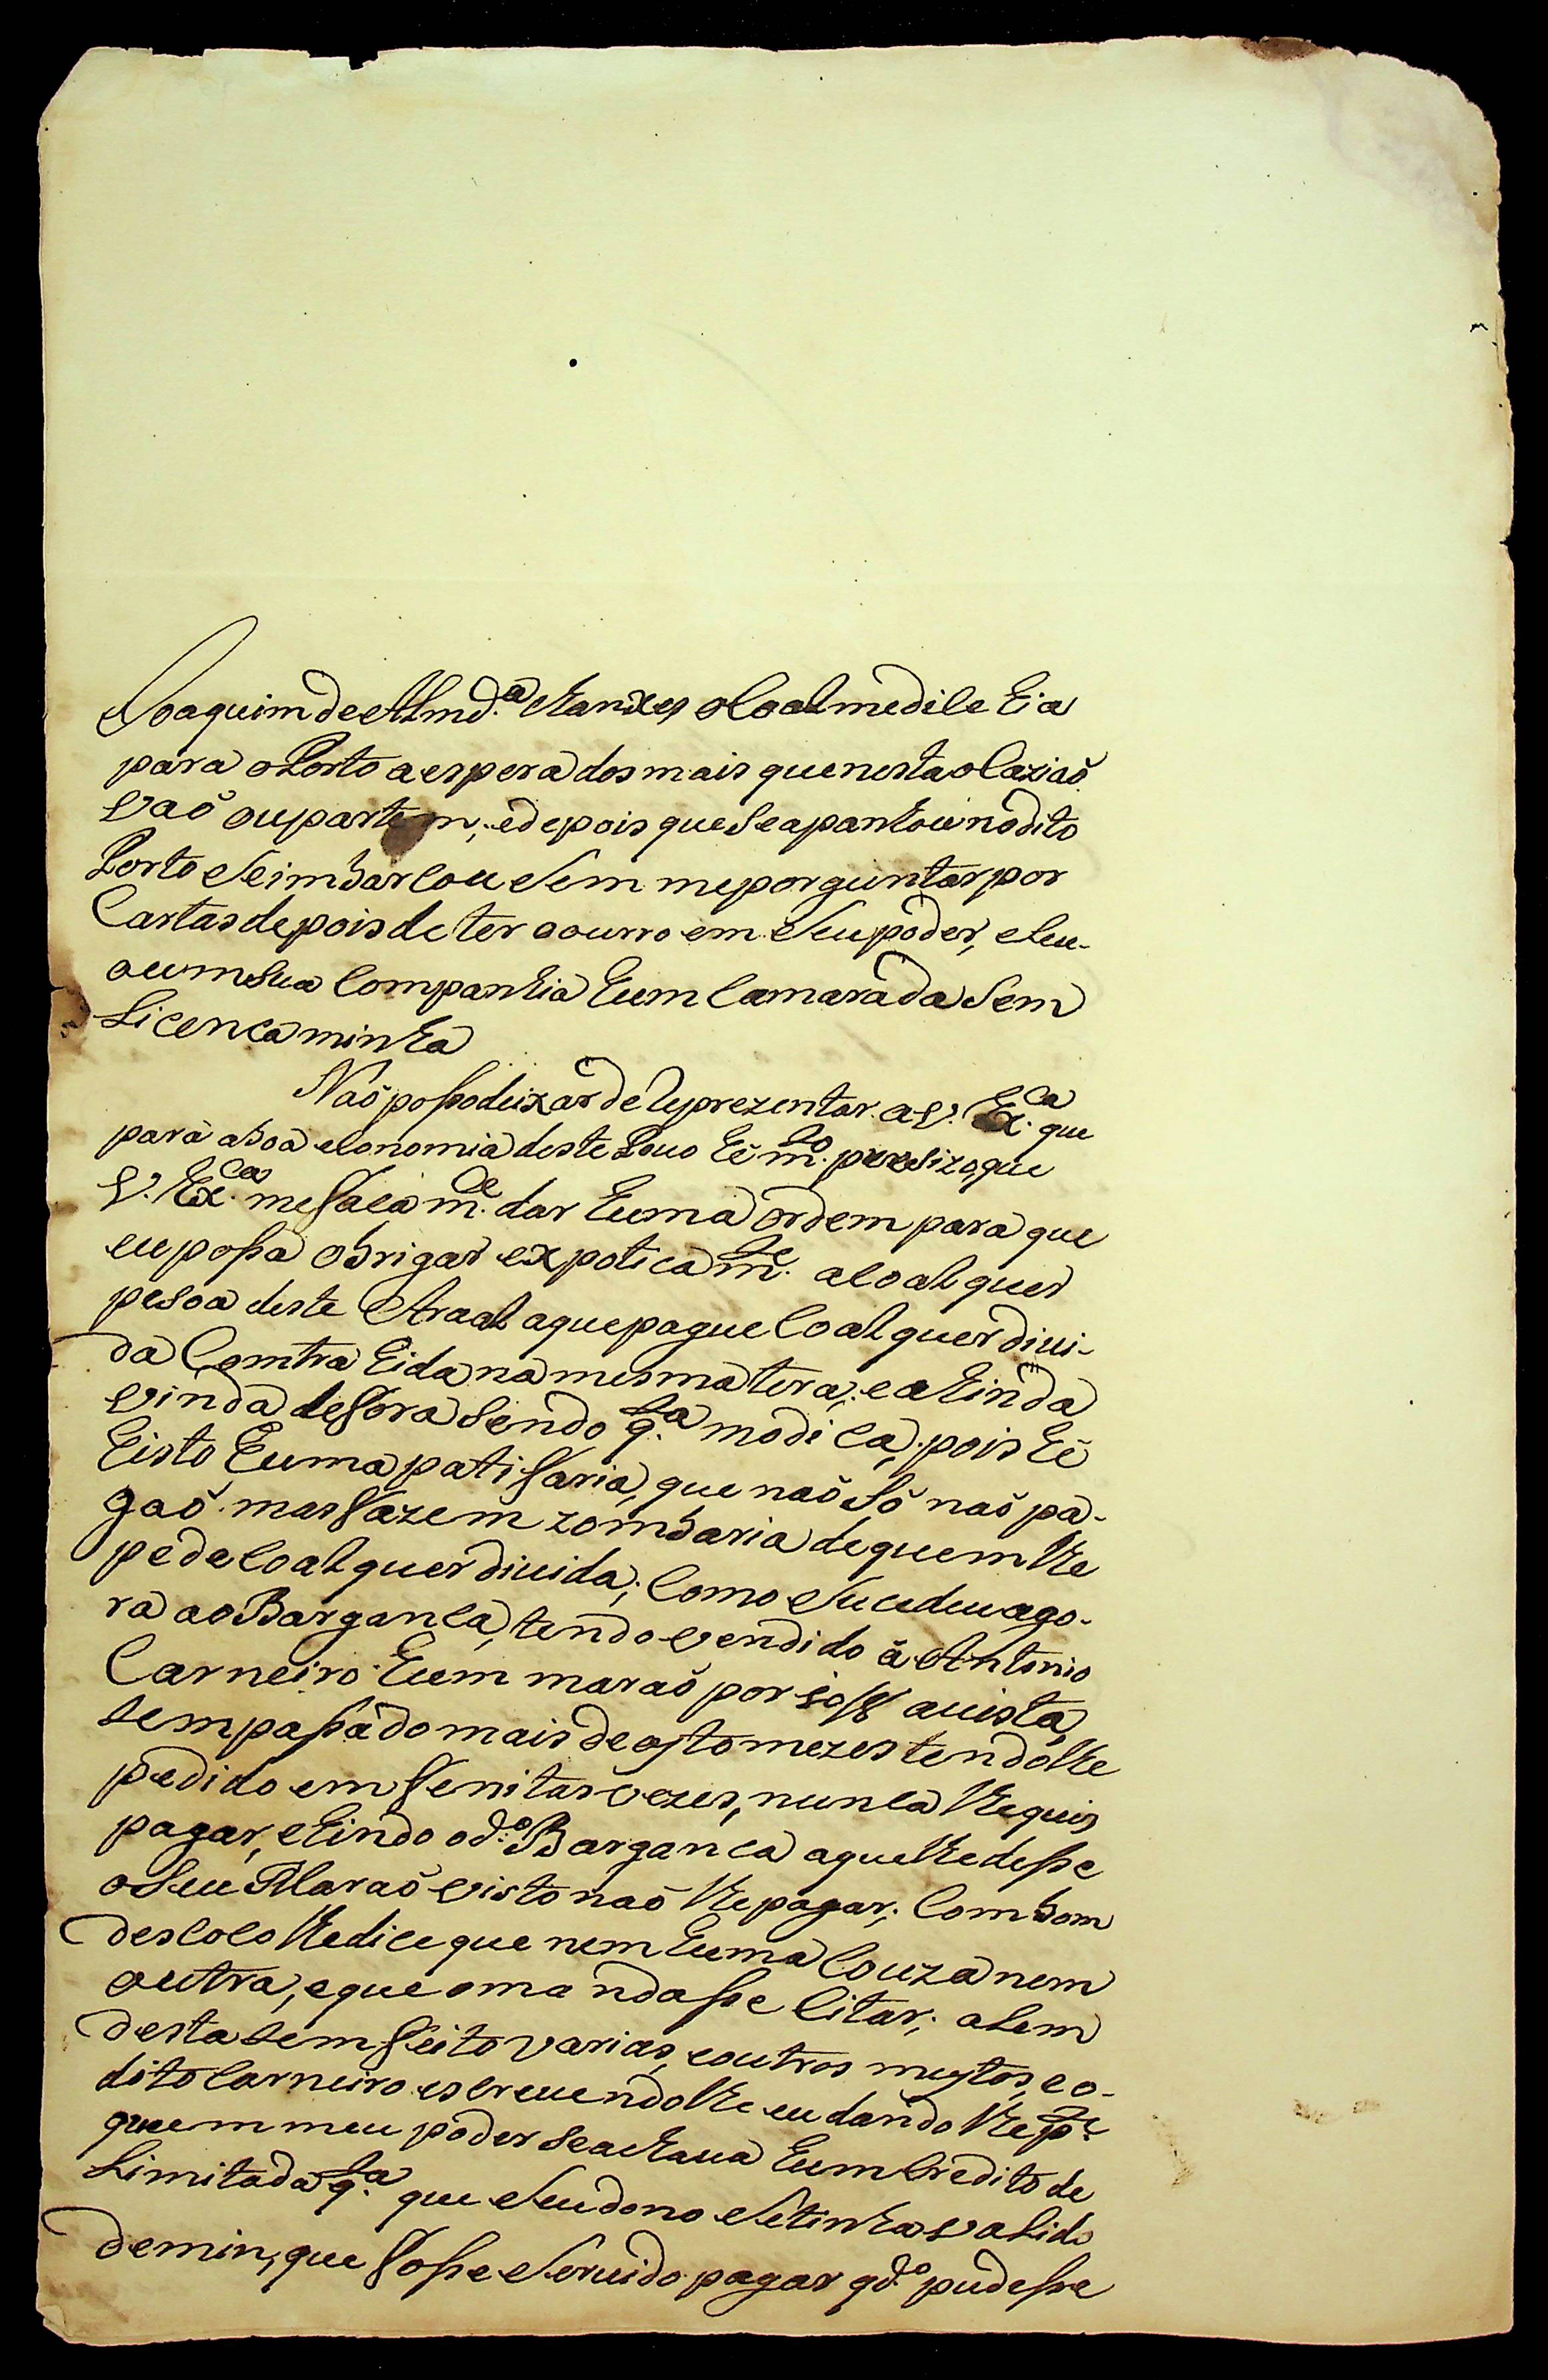 Joaquim de Almd.ª Xanxes o Coal me dice hia
para o Porto a espera dos mais que nesta oCaziaõ
vaõ ou partem, e depois que Se apanhou no dito
Porto Se imbarcou Sem me porguntar por
Cartas depois de ter o ouro em Seu poder, e Leu-
ou em Sua Companhia hum Camarada Sem
Licenca minha
Naõ poso deixar de Reprezentar a V. Ex.ca que
para a boa economia deste Pouo hé m.to presizo, que
V. Ex.ca me faca m.ce dar huma ordem para que
eu possa obrigar expoticam.te a Coal quer
pesoa deste Araal a que pague Coal quer diui-
da Comtrahida na mesma tera, e a hinda
vinda de fora Sendo q.ta modica, pois hé
histo huma patifaria, que naõ Só naõ pa-
gaõ mas fazem zombaria de quem lhe
pede Coal quer diuida, Como Sucedeu ago-
ra ao Barganca, tendo vendido a Antonio
Carneiro hum maraõ por a uista,
tem passado mais de oyto mezes tendo lhe
pedido em fenitas vezes, nunca lhe quis
pagar, e hindo o d.º Barganca a que lhe desse
o Seu Maraõ visto naõ lhe pagar, Com bom
descoco lhe dice que nem huma Couza nem
outra, e que o mandasse Citar, alem
desta tem feito varias, e outros muytos, e o-
dito Carneiro escreuendo lhe eu dando lhe p.te
que em meu poder Se achaua hum Credito de
Limitada q.ta que Seu dono Se tinha valido
de min, que fosse Seruido pagar qd.º pudesse